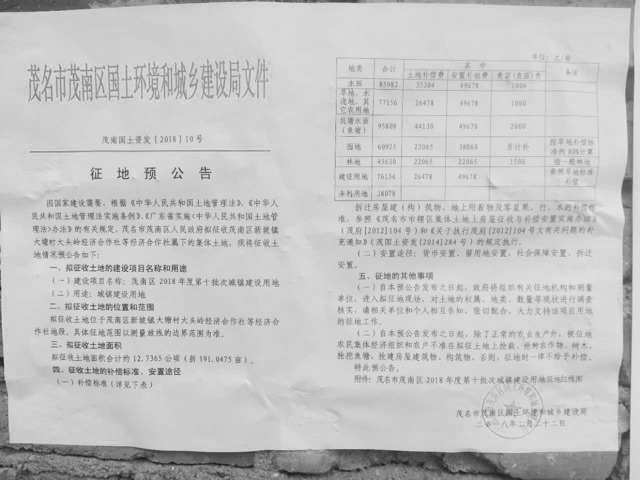 茂名市茂南区国土环境和城乡建设局文件
茂南国土资发〔2018〕10号
征地预公告
因国家建设需要，根据《中华人民共和国土地管理法》、《中华人
民共和国土地管理法实施条例》、《广东省实施〈中华人民共和国土地管
理法〉办法》的有关规定，茂名市茂南区人民政府拟征收茂南区新坡镇
大塘村大头岭经济合作社等经济合作社属下的集体土地，现将征收土
地情况预公告如下：
一、拟征收土地的建设项目名称和用途
（一）建设项目名称：茂南区2018年度第十批次城镇建设用地
（二）用途：城镇建设用地
二、拟征收土地的位置和范围
拟征收土地位于茂南区新坡镇大塘村大头岭经济合作社等经济合
作社地段。具体征地范围以测量放线的边界范围为准。
三、拟征收土地面积
拟征收土地面积合计约12.7365公顷（折191.0475亩）。
四、征收土地的补偿标准、安置途径
（一）补偿标准（详见下表）
单位：元/亩
地类 合计 其中 备注
土地补偿费 安置补助费 青苗(鱼苗)费
水田 85982 35304 49678 1000
旱地、水浇地、其它农用地 77156 26478 49678 1000
坑塘水面（鱼塘） 95808 44130 49678 2000
园地 60925 22065 38860 另计补 按旱地补偿标准的80%计算
林地 45630 22065 22065 1500 指一般林地
建设用地 76156 26478 49678 参照旱地标准补偿
未利用地 38078
拆迁房屋建（构）筑物、地上附着物及零星果、竹、木的补偿标
准，参照《茂名市市辖区集体土地上房屋征收与补偿安置实施办法》
（茂府〔2012〕104号）和《关于执行茂府〔2012〕104号文有关问题的补
充通知》（茂国土资发〔2014〕284号）的规定执行。
（二）安置途径：货币安置、留用地安置、社会保障安置、拆迁
安置。
五、征地的其他事项
（一）自本预公告发布之日起，政府将组织有关征地机构和测量
单位，进入拟征地现场，对土地的权属、地类、数量等现状进行调查
核实，请相关单位和个人相互告知，密切配合，大力支持该项目用地
的征地工作。
（二）自本预公告发布之日起，除了正常的农业生产外，被征地
农民集体经济组织和农户不准在拟征目土地上抢栽、抢种农作物、树木，
抢挖鱼塘，抢建房屋建筑物、构筑物，否则，征地时一律不给予补偿。
特此预公告。
附件：茂名市茂南区2018年度第十批次城镇建设用地征地红线图
茂名市茂南区国土环境和城乡建设局
二〇一八年二月二十二日